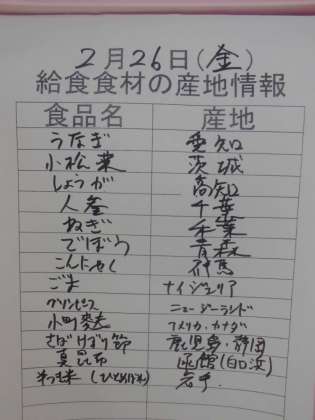 2月26日(金)
給食食材の産地情報
食品名 産地
うなぎ 愛知
小松菜 茨城
しょうが 高知
人参 千葉
ねぎ 千葉
ごぼう 青森
こんにゃく 群馬
ごま ナイジェリア
プリンセス ニュージーランド
小町麩 アメリカ・カナダ
さばけずり節 鹿児島・静岡
真昆布 函館(白口浜)
米 (ひとめぼれ) 岩手